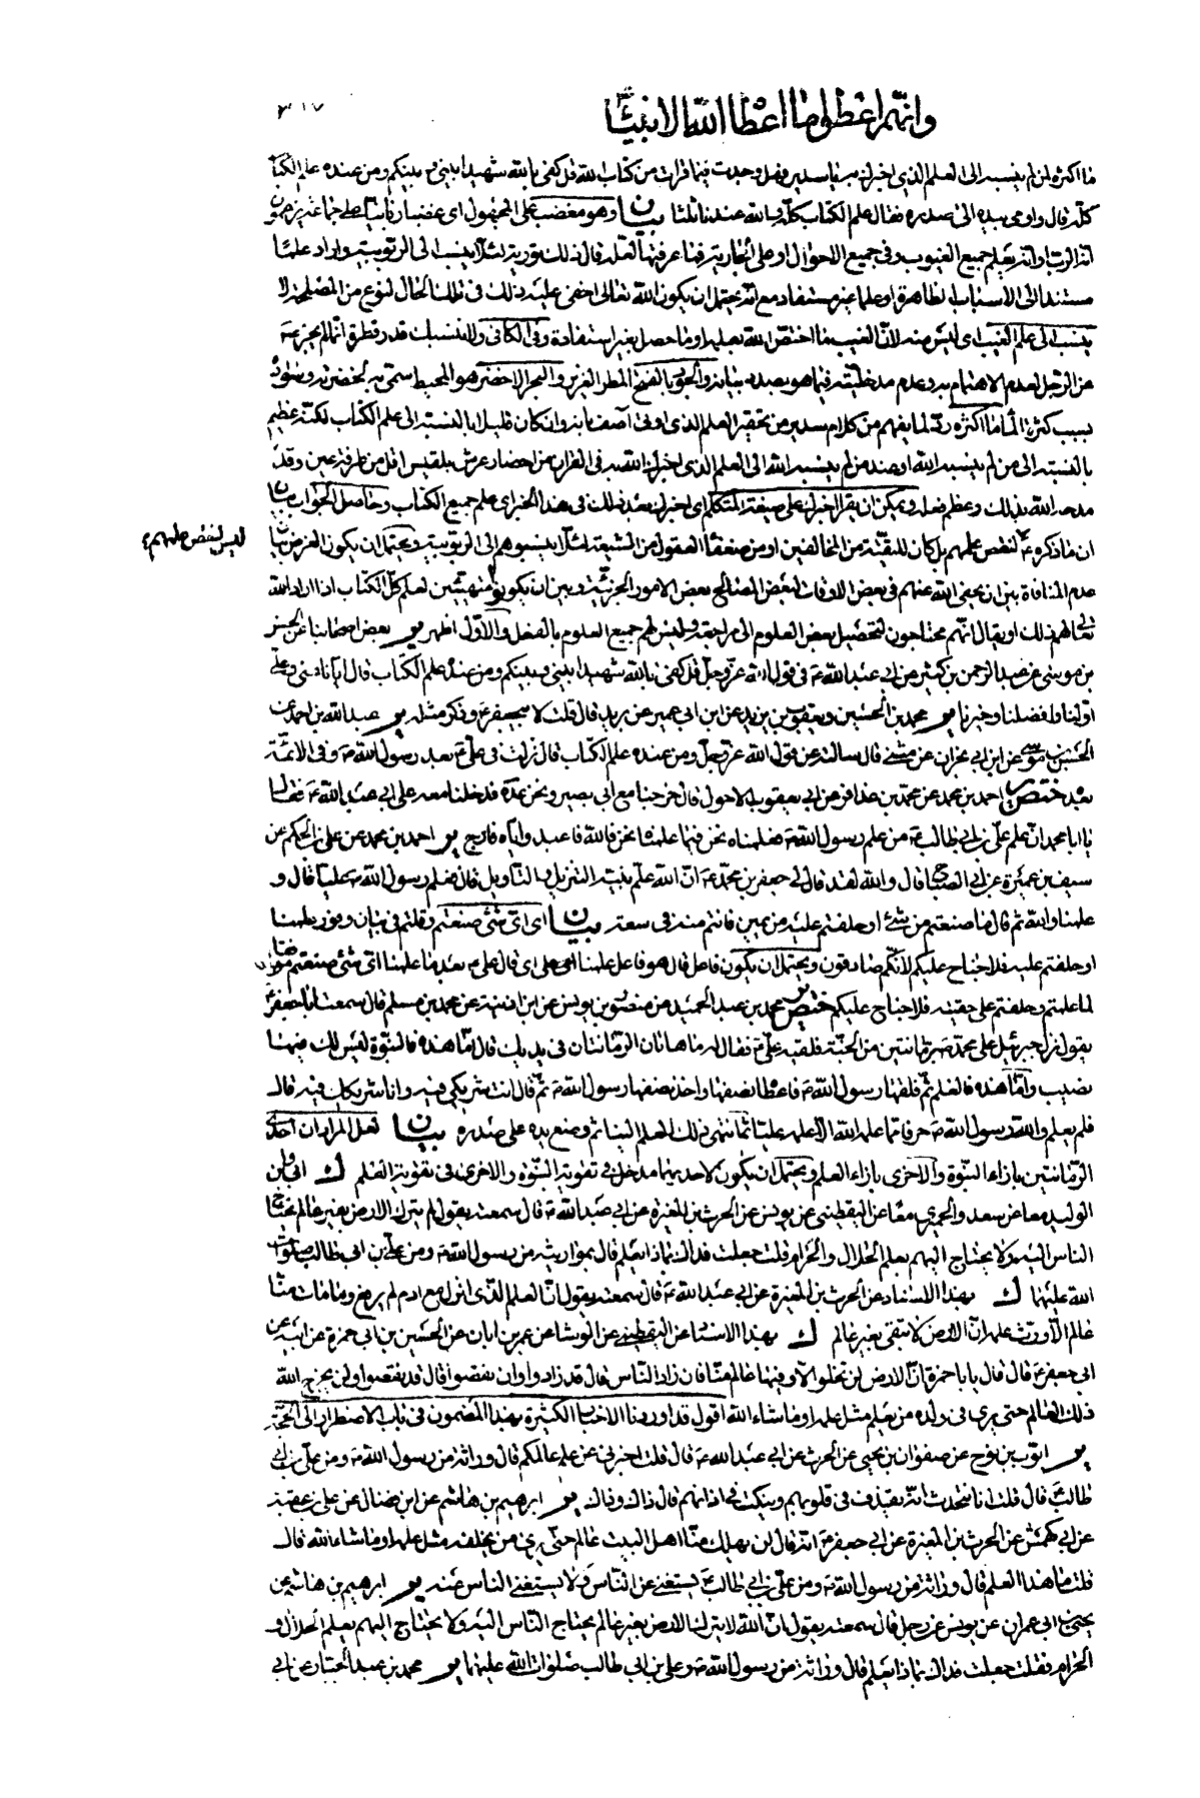 وانهم اعطوا ما اعطا الله الانبیاء
۳۱۷
ما اكثره لمن لم ینسبه الی العلم الذی اخبرك به یا سدیر فهل وجدت فیما قرات من كتاب الله قل كفی بالله شهیدا بینی و بینكم ومن عنده علم الكتاب
كله قال واومی بیده الی صدره فقال علم الكتاب كله والله عندنا ثلثا بیان وهو مغضب علی المجهول ای غضبا ربانیا علی جماعة یزعمون
انه الرب او انه یعلم جمیع الغیوب وفی جمیع الاحوال او علی الجاریة فما عرفتها لعله قال ذلك توریة لئلا ینسب الی الربوبیة واراد علما
مستندا الی الاسباب الظاهرة او علما غیر مستفاد مع انه یحتمل ان یكون الله تعالی اخفی علیه ذلك فی تلك الحال لنوع من المصلحة لا
ینسب الی علم الغیب ای لیس منه لان الغیب ما اختص الله بعلمه او ما حصل بغیر استفادة وفی الكافی ولا ننسبك قدر قطرة انما لم یجز به
عن الرجل لعدم الاهتمام به وعدم مدخلیته فیما هو بصدد بیانه والجود بالفتح المطر الغزیر والبحر الاخضر هو المحیط اسمی به لخضرته وسواده
بسبب كثرة الماء ما اكثره رد لما یفهم من كلام سدیر من تحقیر العلم الذی اوتی آصف بانه وان كان قلیلا بالنسبة الی علم الكتاب لكنه عظیم
بالنسبة الی من لم ینسبه الله او عند من لم ینسبه الله الی العلم الذی اخبرك الله به فی القران من احضار عرش بلقیس اقل من طرفة عین وقد
مدحه الله بذلك وعظم فعله ویمكن ان یقرأ اخبرك علی صیغة المتكلم ای اخبرك بعد ذلك فی هذا الخبر ای علم جمیع الكتاب وحاصل الجواب بیان
ان ما ذكره ع لنقص علمهم بل كان للتقیة من المخالفین او من ضعفاء العقول من الشیعة لئلا ینسبوهم الی الربوبیة ویحتمل ان یكون الغرض بیان
لیس لنقص علمهم
عدم المنافاة بین ان یخفی الله عنهم فی بعض الاوقات لبعض المصالح بعض الامور الجزئیة وبین ان یكونوا متهیئین لعلم كل الكتاب اذا اراد الله
تعالی لهم ذلك او یقال انهم محتاجون لتحصیل بعض العلوم الی مراجعة ولیس لهم جمیع العلوم بالفعل والاول اظهر یر بعض اصحابنا عن الحسن
بن موسی عن عبد الرحمن بن كثیر عن ابی عبد الله ع فی قول الله عز وجل قل كفی بالله شهیدا بینی وبینكم ومن عنده علم الكتاب قال ایانا عنی وعلی
اولنا وافضلنا وخیرنا یر محمد بن الحسین ویعقوب بن یزید عن ابن ابی عمیر عن برید قال قلت لابی جعفر ع وذكر مثله یر عبد الله بن احمد عن
الحسن بن موسی عن ابن ابی نجران عن مثنی قال سالته عن قول الله عز وجل ومن عنده علم الكتاب قال نزلت فی علی ع بعد رسول الله ص وفی الائمة
بعده ختص احمد بن محمد عن عمر بن عذافر عن ابی یعقوب الاحول قال خرجنا مع ابی بصیر ونحن عدة فدخلنا معه علی ابی عبد الله ع فقال
یا ابا محمد ان علم علی بن ابی طالب ع من علم رسول الله ص فعلمناه نحن فیما علمنا نحن فالله فاعبد وایاه فارج یر احمد بن محمد عن علی بن الحكم عن
سیف بن عمیرة عن ابی الصباح قال والله لقد قال لی جعفر بن محمد ع ان الله علم نبیه التنزیل والتأویل قال فعلم رسول الله ص علیا قال و
علمنا والله ثم قال ما صنعتم من شئ او حلفتم علیه من یمین فانتم منه فی سعة بیان ای ای شئ صنعتم وقلتم فی بیان وفور علمنا
او حلفتم علیه فلا جناح علیكم لانكم صادقون ویحتمل ان یكون فاعل قال هو فاعل علمنا اعنی علی ای قال علی ع بعد ما علمنا ای شئ صنعتم موافقا
لما علمتم وحلفتم علی حقیته فلا جناح علیكم ختص یر محمد بن عبد الحمید عن منصور بن یونس عن ابن اذینة عن محمد بن مسلم قال سمعت ابا جعفر ع
یقول نزل جبرئیل علی محمد ص برمانتین من الجنة فلقیه علی ع فقال له ما هاتان الرمانتان فی یدیك قال اما هذه فالنبوة لیس لك فیها
نصیب واما هذه فالعلم ثم فلقها رسول الله ص فاعطاه نصفها واخذ نصفها رسول الله ص ثم قال انت شریكی فیه وانا شریكك فیه قال
فلم یعلم والله رسول الله ص حرفا مما علمه الله الا علمه علیا ثم انتهی ذلك العلم الینا ثم وضع یده علی صدره بیان لعل المراد ان احدی
الرمانتین بازاء النبوة والاخری بازاء العلم ویحتمل ان یكون لاحدیهما مدخل فی تقویة النبوة والاخری فی تقویة العلم ك ابی وابن
الولید معا عن سعد والحمیری معا عن الیقطینی عن یونس عن الحرث بن المغیرة عن ابی عبد الله ع قال سمعته یقول لم یترك الارض بغیر عالم یحتاج
الناس الیه ولا یحتاج الیهم یعلم الحلال والحرام قلت جعلت فداك بماذا یعلم قال بمواریثه من رسول الله ص ومن علی بن ابی طالب صلوات
الله علیهما ك بهذا الاسناد عن الحرث بن المغیرة عن ابی عبد الله ع قال سمعته یقول ان العلم الذی انزل مع ادم لم یرفع وما مات منا
عالم الا ورث علمه ان الارض لا تبقی بغیر عالم ك بهذا الاسناد عن الیقطینی عن الوشا عن عمر بن ابان عن الحسین بن ابی حمزة عن ابیه عن
ابی جعفر ع قال قال یا با حمزة ان الارض لن تخلو الا وفیها عالم منا فان زاد الناس قال قد زادوا وان نقصوا قال قد نقصوا ولن یخرج الله
ذلك العالم حتی یری فی ولده من یعلم مثل علمه او ما شاء الله اقول قد اوردنا الاخبار الكثیرة بهذا المضمون فی باب الاضطرار الی الحجة
یر ایوب بن نوح عن صفوان بن یحیی عن الحرث عن ابی عبد الله ع قال قلت اخبرنی عن علم عالمكم قال وراثة من رسول الله ص ومن علی بن ابی
طالب ع قال قلت انا نتحدث انه یقذف فی قلوبهم وینكت فی اذانهم قال ذاك وذاك یر ابرهیم بن هاشم عن ابن فضال عن علی بن عقبة
عن ابی كهمش عن الحرث بن المغیرة عن ابی جعفر ع انه قال لن یهلك منا اهل البیت عالم حتی یری من یخلفه مثل علمه او ما شاء الله قال
قلت ما هذا العلم قال وراثة من رسول الله ص ومن علی بن ابی طالب ع یستغنی عن الناس ولا یستغنی الناس عنه یر ابرهیم بن هاشم عن
یحیی بن ابی عمران عن یونس عن رجل قال سمعته یقول ان الله لا یترك الارض بغیر عالم یحتاج الناس الیه ولا یحتاج الیهم یعلم الحلال و
الحرام فقلت جعلت فداك بماذا یعلم قال وراثة من رسول الله ص وعلی بن ابی طالب صلوات الله علیهما یر محمد بن عبد الجبار عن ابی